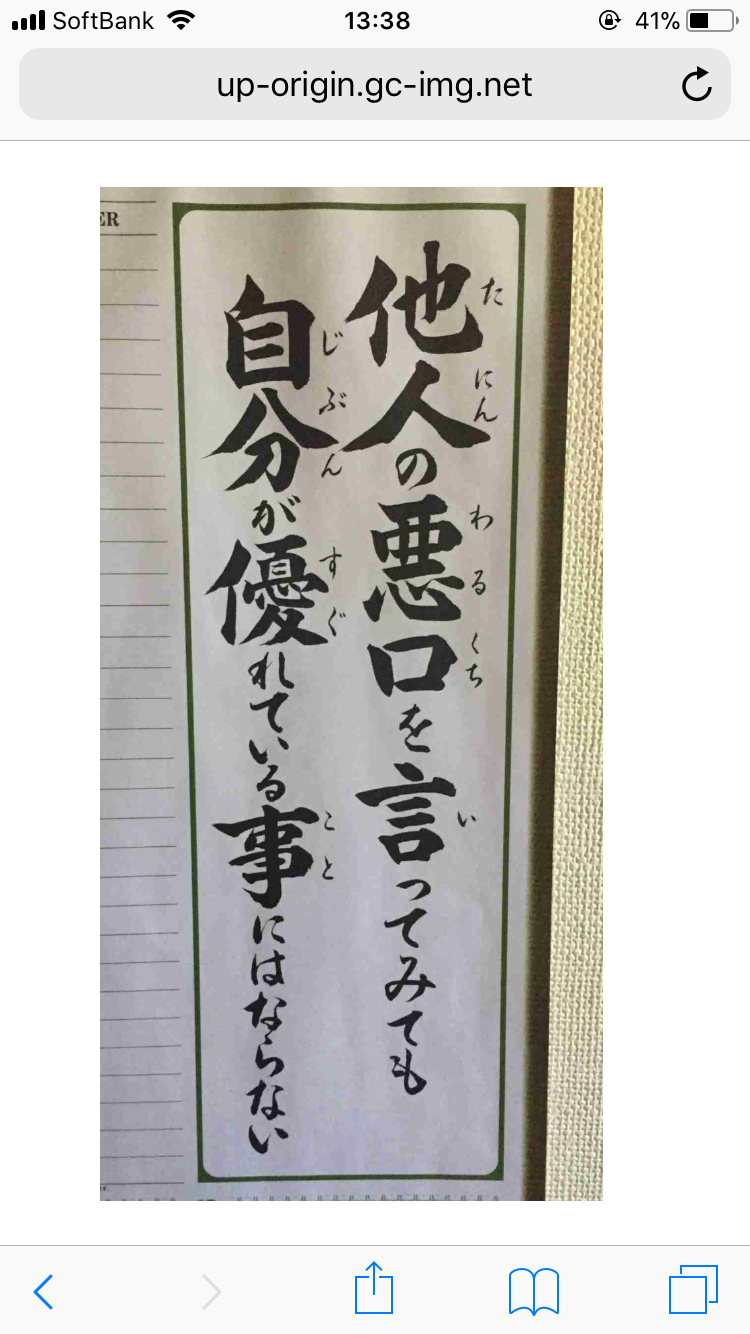 SoftBank 13:38 41%
up-origin.gc-img.net
ER
他人の悪口を言ってみても
たにん わるくち い
自分が優れている事にはならない
じぶん すぐ こと